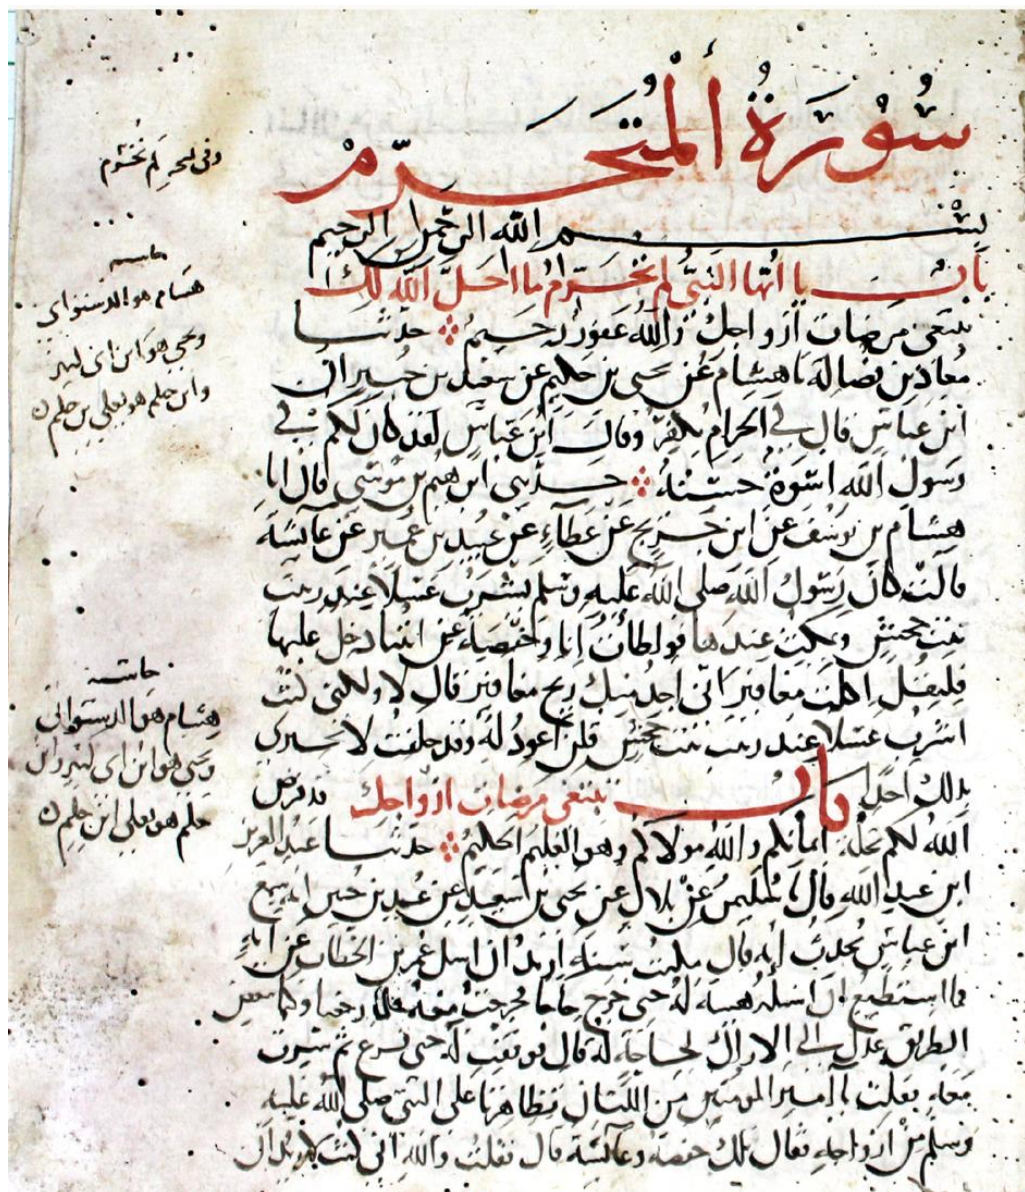 سُوْرَةُ أَلْمُتَحَرِّمْ
بسم الله الرحمن الرحيم
باب يا ايها النبي لم تحرم ما احل الله لك
تبتغي مرضات ازواجك والله غفور رحيم حدثنا
معاذ بن فضالة نا هشام عن يحيى بن حكيم عن سعيد بن جبير ان
ابن عباس قال في الحرام يكفر وقال ابن عباس لقد كان لكم في
رسول الله اسوة حسنة حدثني ابرهيم بن موسى قال انا
هشام بن يوسف عن ابن جريج عن عطاء عن عبيد بن عمير عن عائشة
قالت كان رسول الله صلى الله عليه وسلم يشرب عسلا عند زينب
بنت جحش ويمكث عندها فواطأت انا وحفصة عن ايتنا دخل عليها
فليقل اكلت مغافير اني اجد منك ريح مغافير قال لا ولكني كنت
اشرب عسلا عند زينب بنت جحش فلن اعود له وقد حلفت لا تخبري
بذلك احدا باب تبتغي مرضات ازواجك قد فرض
الله لكم تحلة ايمانكم والله مولاكم وهو العليم الحكيم حدثنا عبد العزيز
ابن عبد الله قال نا سليمن عن بلال عن يحيى بن سعيد عن عبيد بن حنين انه سمع
ابن عباس يحدث انه قال مكثت سنة اريد ان اسل عمر بن الخطاب عن اية
فما استطيع ان اسله هيبة له حتى خرج حاجا فخرجت معه فلما رجعنا وكنا ببعض
الطريق عدل الى الاراك لحاجة له قال فوقفت له حتى فرغ ثم سرت
معه فقلت يا امير المومنين من اللتان تظاهرتا على النبي صلى الله عليه
وسلم من ازواجه فقال تلك حفصة وعائشة قال فقلت والله اني كنت لاريد ان
وفي لم تحرم
حاشية
هشام هو الدستوائي
ويحيى هو ابن ابي كثير
وابن حكيم هو يعلى بن حكيم
حاشية
هشام هو الدستوائي
ويحيى هو ابن ابي كثير وابن
حكيم هو يعلى ابن حكيم